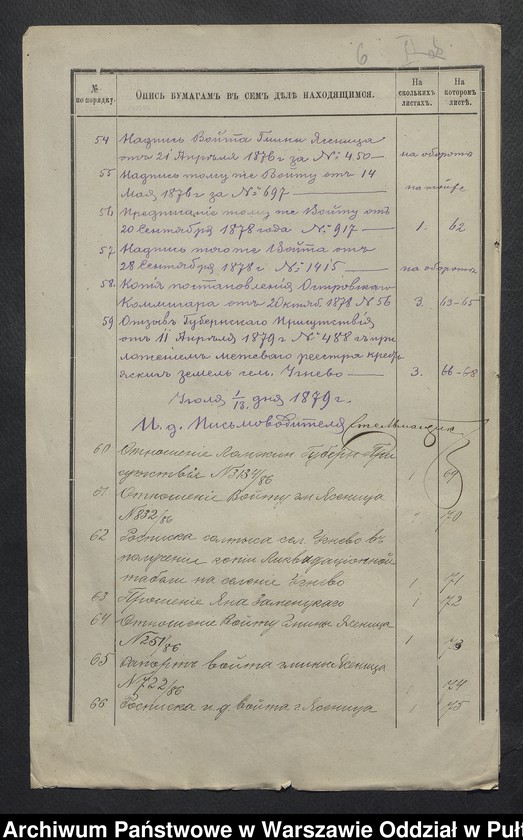 6
№ по порядку.
Опись бумагамъ въ семъ дѣлѣ находящимся.
На сколькихъ листахъ.
На которомъ листѣ.
54 Надпись Войта Гмины Ясеница
отъ 21 Апрѣля 1876 г за № 450 — на оборотѣ
55 Надпись тому же Войту отъ 14
Мая 1876 г за № 697 —
56 Предписаніе тому же Войту отъ
20 Сентября 1878 года № 917 — 1. 62
57 Надпись того же Войта отъ
28 Сентября 1878 г № 1415 — на оборотѣ
58. Копія постановленія Островскаго
Коммисара отъ 20 октяб 1878 № 56 3. 63-65
59 Отзывъ Губернскаго Присутствія
отъ 11 Апрѣля 1879 г № 488 съ при
ложеніемъ межеваго реестра крест
янскихъ земель сел. Угнево — 3. 66-68
Іюля 1/13. дня 1879 г.
И. д. Письмоводителя
60 Отношеніе Ломжин Губерн При
сутствіе 1 69
61 Отношеніе Войту гм Ясеница
№ 832/86 1 70
62 Росписка солтыса сел. Угнево въ
полученіи копіи Ликвидаціонной
табели на селеніе Угнево 1 71
63 Прошеніе Яна 1 72
64 Отношеніе Войту Гмины Ясеница
№ 251/86 1 73
65 Рапортъ войта гмины Ясеница
№ 722/86 1 74
66 Росписка и.д. войта г. Ясеница 1 75
Archiwum Państwowe w Warszawie Oddział w Puł